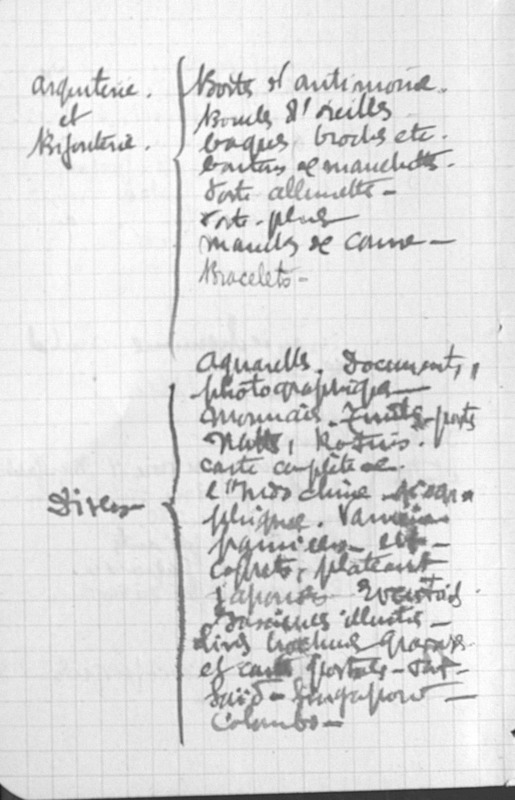 Argenterie.
et
Bijouterie.
Boîtes d'antimoine.
Boucles d'oreilles
bagues, broches etc.
boutons de manchettes.
Porte allumettes -
Porte-plume
manches de canne -
Bracelets -
Divers
Aquarelles. Documents,
photographiques
Monnaies. timbres-poste
Nattes, Rotins.
carte complète de
l'Indo chine
paniers -
coffrets, plateaux
Japonais - Eventails
Fascicules illustrés -
Livres brochures gravures
et cartes postales - Port-
Saïd - Singapour -
Colombo -